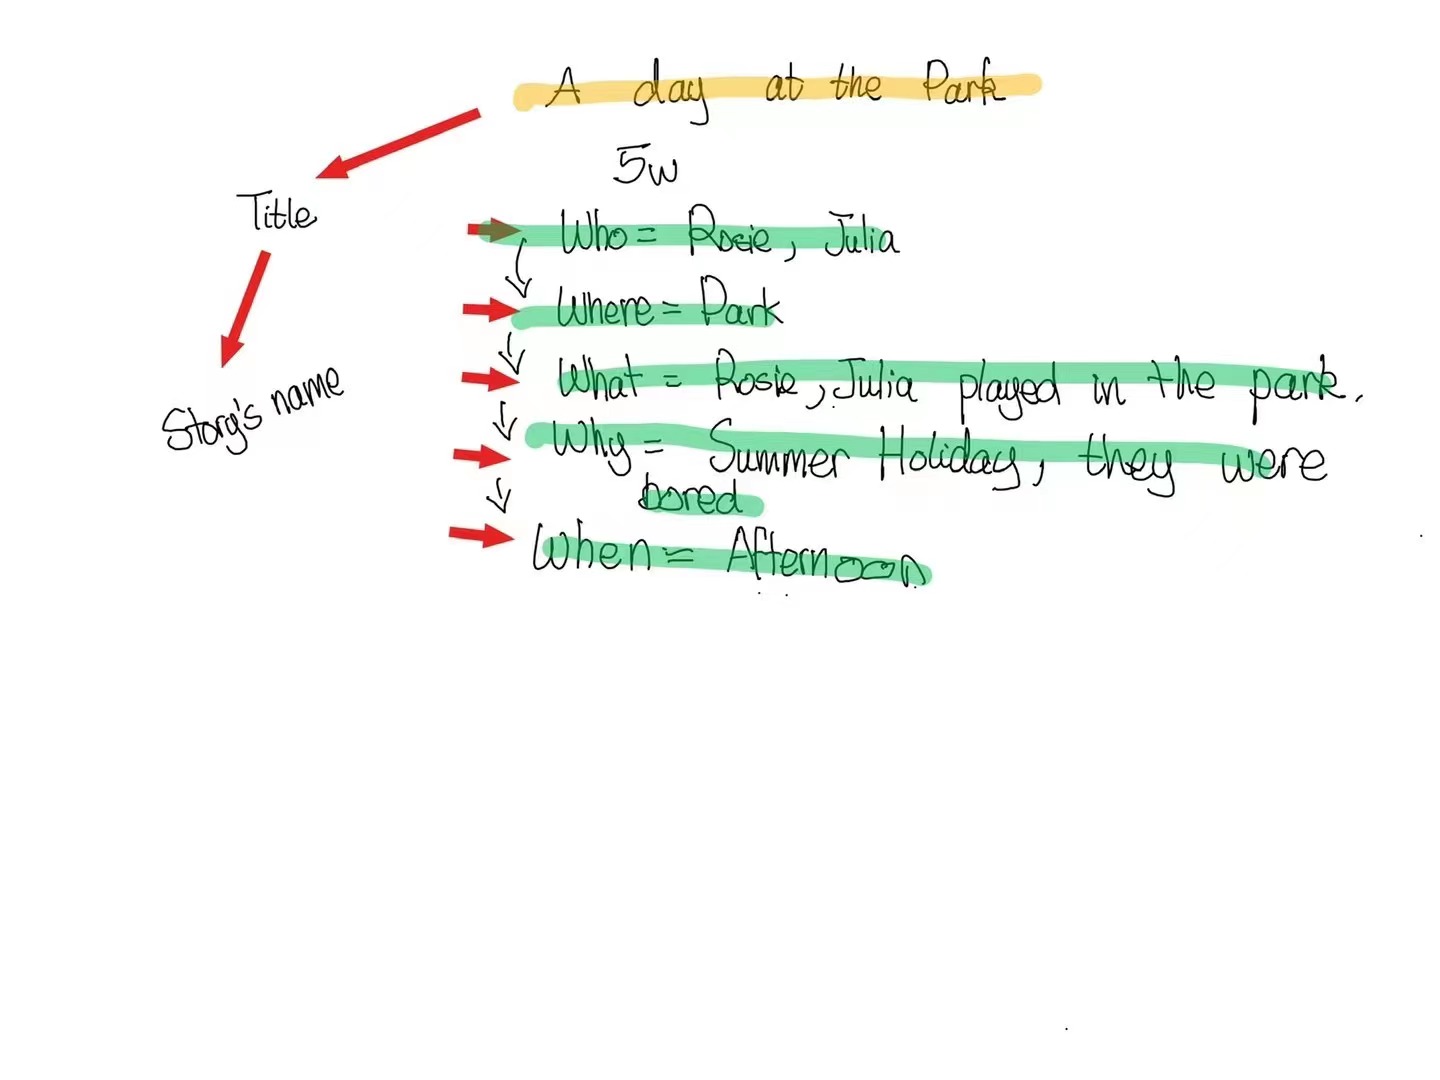 A day at the Park
5w
Title
Who = Rosie, Julia
Where = Park
What = Rosie, Julia played in the park.
Story's name
Why = Summer Holiday, they were
bored
When = Afternoon